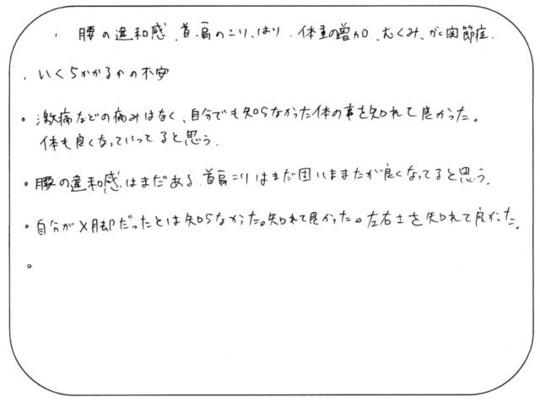 ・腰の違和感、首・肩のこり、はり、体重の増加、むくみ、がく関節症、
・いくらかかるかの不安
・激痛などの痛みはなく、自分でも知らなかった体の事を知れて良かった。
体も良くなっていってると思う。
・腰の違和感はまだある。首肩こりはまだ固いままだが良くなってると思う。
・自分がX脚だったとは知らなかった。知れて良かった。左右士を知れて良かった。